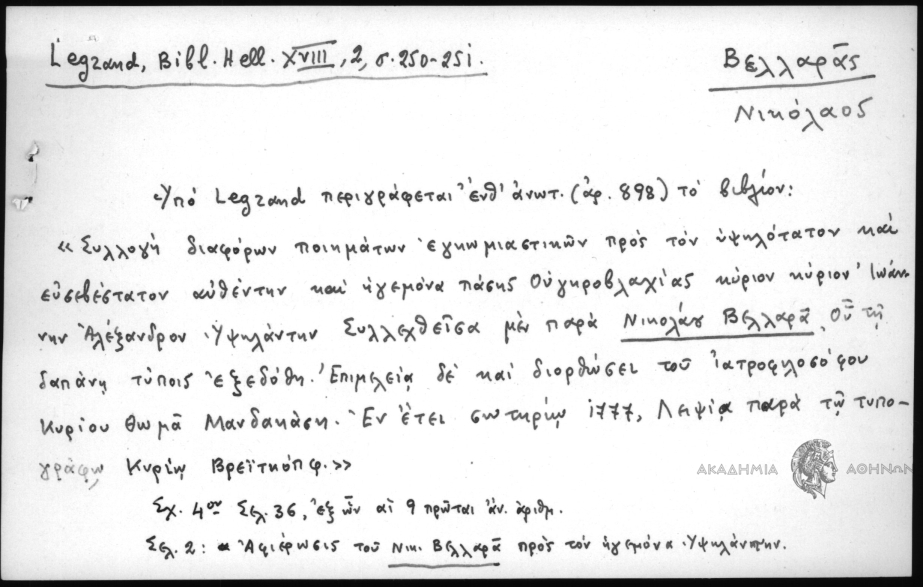 Legrand, Bibl. Hell. XVIII, 2, σ. 250-251.
Βελλαρᾶς
Νικόλαος
Ὑπό Legrand περιγράφεται ἐνθ' ἀνωτ. (ἀρ. 898) τό βιβλίον:
«Συλλογή διαφόρων ποιημάτων ἐγκωμιαστικῶν πρός τόν ὑψηλότατον καί
εὐσεβέστατον αὐθέντην καί ἡγεμόνα πάσης Οὐγκροβλαχίας κύριον κύριον Ἰωάν
νην Ἀλέξανδρον Ὑψηλάντην Συλλεχθεῖσα μέν παρά Νικολάου Βελλαρᾶ, Οὗ τῇ
δαπάνῃ τύποις ἐξεδόθη. Ἐπιμελείᾳ δέ καί διορθώσει τοῦ ἰατροφιλοσόφου
Κυρίου Θωμᾶ Μανδακάση. Ἐν ἔτει σωτηρίῳ 1777, Λειψίᾳ παρά τῷ τυπο-
γράφῳ Κυρίῳ Βρεϊτκόπφ.»
ΑΚΑΔΗΜΙΑ ΑΘΗΝΩΝ
Σχ. 4ον Σελ. 36, ἐξ ὧν αἱ 9 πρῶται ἀν. ἀριθμ.
Σελ. 2: Ἀφιέρωσις τοῦ Νικ. Βελλαρᾶ πρός τόν ἡγεμόνα Ὑψηλάντην.